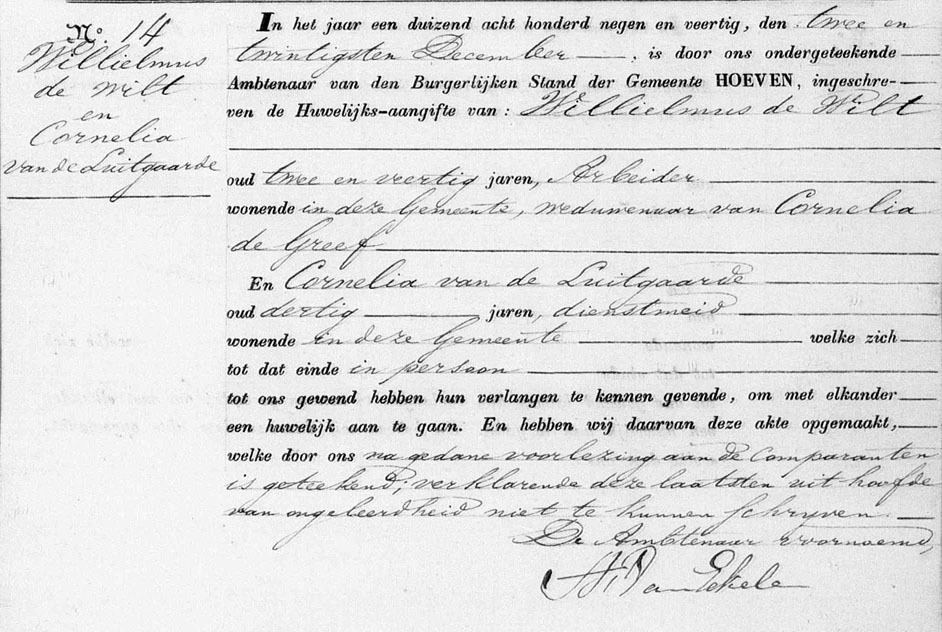 No. 14
Willielmus
de Wilt
en
Cornelia
van de Luitgaarde
In het jaar een duizend acht honderd negen en veertig, den twee en
twintigsten December, is door ons ondergeteekende
Ambtenaar van den Burgerlijken Stand der Gemeente HOEVEN, ingeschre-
ven de Huwelijks-aangifte van: Willielmus de Wilt
oud twee en veertig jaren, Arbeider
wonende in deze Gemeente, weduwenaar van Cornelia
de Greef
En Cornelia van de Luitgaarde
oud dertig jaren, dienstmeid
wonende in deze Gemeente welke zich
tot dat einde in persoon
tot ons gewend hebben hun verlangen te kennen gevende, om met elkander
een huwelijk aan te gaan. En hebben wij daarvan deze akte opgemaakt,
welke door ons na gedane voorlezing aan de Comparanten
is geteekend; verklarende deze laatsten uit hoofde
van ongeleerdheid niet te kunnen schryven.
De Ambtenaar voornoemd,